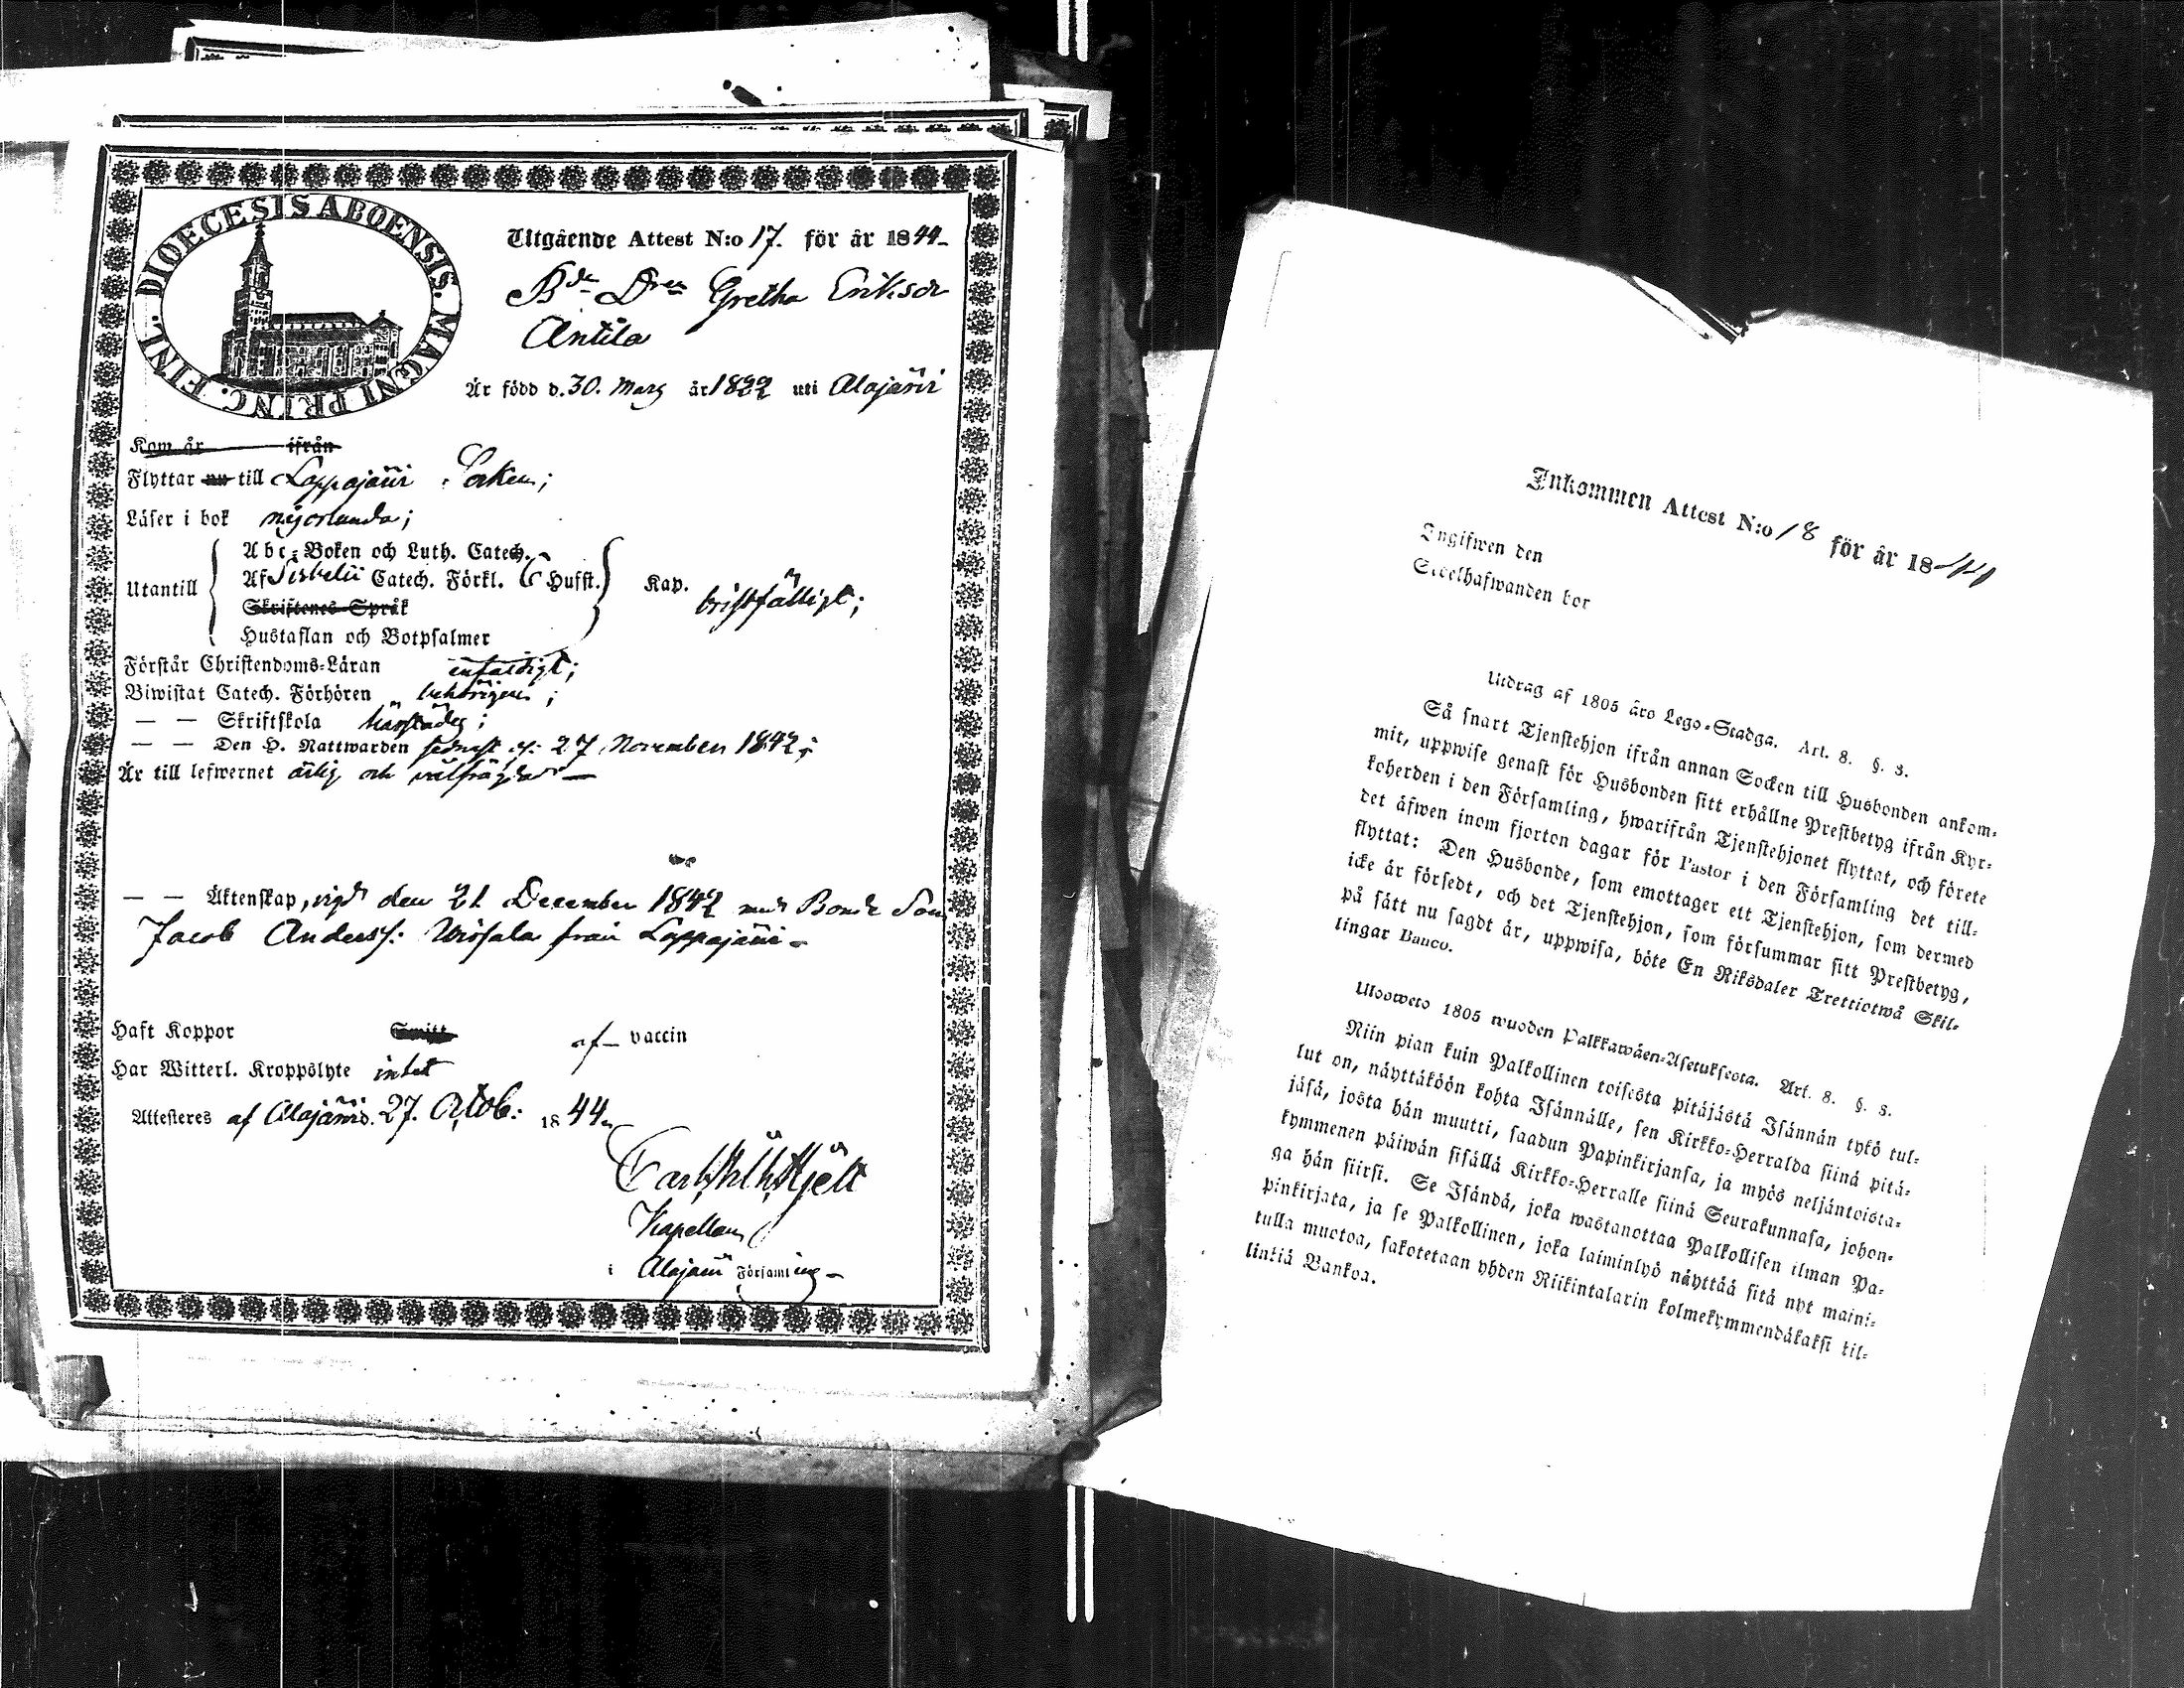 DIOECESIS ABOENSIS. MAGNI PRINC. FINL.
Utgående Attest N:o 17. för år 1844
Bde Dren Gretha Eriksdr
Antila
Är född d. 30. Mars år 1822 uti Alajärvi
Kom år ifrån
Flyttar nu till Lappajärvi Socken;
Läser i bok någorlunda;
Abc-Boken och Luth. Catech.
Utantill Af Svebelii Catech. Förkl. Husst. Kap. bristfälligt;
Skriftenes Språk
Hustaflan och Botpsalmer
Förstår Christendoms-Läran enfaldigt;
Biwistat Catech. Förhören behörigen;
— — Skriftskola härstädes;
— — Den H. Nattwarden sednast d: 27 November 1842;
Är till lefwernet ärlig och välfrägdad —
— — Äktenskap, vigd den 21 December 1842 med Bonde Son
Jacob Anderss: från Lappajärvi -
Haft Koppor af vaccin
Har Witterl. Kroppslyte intet
Attesteres af Alajärvi d. 27. Octob: 1844
Carl Hjelt
Kapellan
i Alajärvi Församling -
Inkommen Attest N:o 18 för år 1844
Ingifwen den
Sedelhafwanden bor
Utdrag af 1805 års Lego-Stadga. Art. 8. §. 3.
Så snart Tjenstehjon ifrån annan Socken till Husbonden ankom-
mit, uppwise genast för Husbonden sitt erhållne Prestbetyg ifrån Kyr-
koherden i den Församling, hwarifrån Tjenstehjonet flyttat, och förete
det äfwen inom fjorton dagar för Pastor i den Församling det till-
flyttat: Den Husbonde, som emottager ett Tjenstehjon, som dermed
icke är försedt, och det Tjenstehjon, som försummar sitt Prestbetyg,
på sätt nu sagdt är, uppwisa, böte En Riksdaler Trettiotwå Skil-
lingar Banco.
Ulosweto 1805 wuoden Palkkawäen-Asetuksesta. Art. 8. §. 3.
Niin pian kuin Palkollinen toisesta pitäjästä Isännän tykö tul-
lut on, näyttäköön kohta Isännälle, sen Kirkko-Herralda siinä pitä-
jäsä, josta hän muutti, saadun Papinkirjansa, ja myös neljäntoista-
kymmenen päiwän sisällä Kirkko-Herralle siinä Seurakunnasa, johon-
ga hän siirsi. Se Isändä, joka wastanottaa Palkollisen ilman Pa-
pinkirjata, ja se Palkollinen, joka laiminlyö näyttää sitä nyt maini-
tulla muotoa, sakotetaan yhden Riikintalarin kolmekymmendäkaksi kil-
linkiä Bankoa.